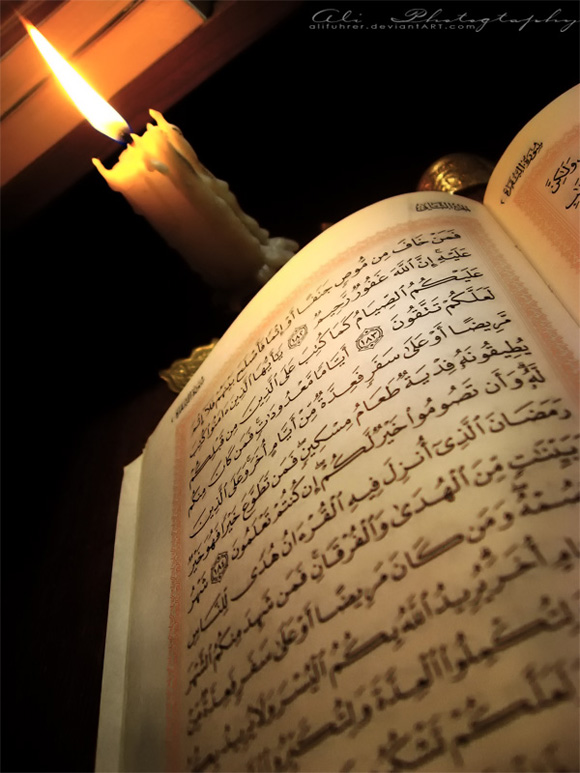 Ali Photography
alifuhrer.deviantART.com
فَمَنْ خَافَ مِن مُّوصٍ جَنَفًا أَوْ إِثْمًا فَأَصْلَحَ بَيْنَهُمْ فَلَآ إِثْمَ
عَلَيْهِ إِنَّ ٱللَّهَ غَفُورٌ رَّحِيمٌ ١٨٢ يَٰٓأَيُّهَا ٱلَّذِينَ ءَامَنُوا۟ كُتِبَ
عَلَيْكُمُ ٱلصِّيَامُ كَمَا كُتِبَ عَلَى ٱلَّذِينَ مِن قَبْلِكُمْ
لَعَلَّكُمْ تَتَّقُونَ ١٨٣ أَيَّامًا مَّعْدُودَٰتٍ فَمَن كَانَ مِنكُم
مَّرِيضًا أَوْ عَلَىٰ سَفَرٍ فَعِدَّةٌ مِّنْ أَيَّامٍ أُخَرَ وَعَلَى ٱلَّذِينَ
يُطِيقُونَهُۥ فِدْيَةٌ طَعَامُ مِسْكِينٍ فَمَن تَطَوَّعَ خَيْرًا فَهُوَ خَيْرٌ
لَّهُۥ وَأَن تَصُومُوا۟ خَيْرٌ لَّكُمْ إِن كُنتُمْ تَعْلَمُونَ ١٨٤ شَهْرُ
رَمَضَانَ ٱلَّذِىٓ أُنزِلَ فِيهِ ٱلْقُرْءَانُ هُدًى لِّلنَّاسِ
بَيِّنَٰتٍ مِّنَ ٱلْهُدَىٰ وَٱلْفُرْقَانِ فَمَن شَهِدَ مِنكُمُ ٱلشَّهْرَ
وَمَن كَانَ مَرِيضًا أَوْ عَلَىٰ سَفَرٍ فَعِدَّةٌ مِّنْ
أُخَرَ يُرِيدُ ٱللَّهُ بِكُمُ ٱلْيُسْرَ وَلَا يُرِيدُ
وَلِتُكْمِلُوا۟ ٱلْعِدَّةَ وَلِتُكَبِّرُوا۟